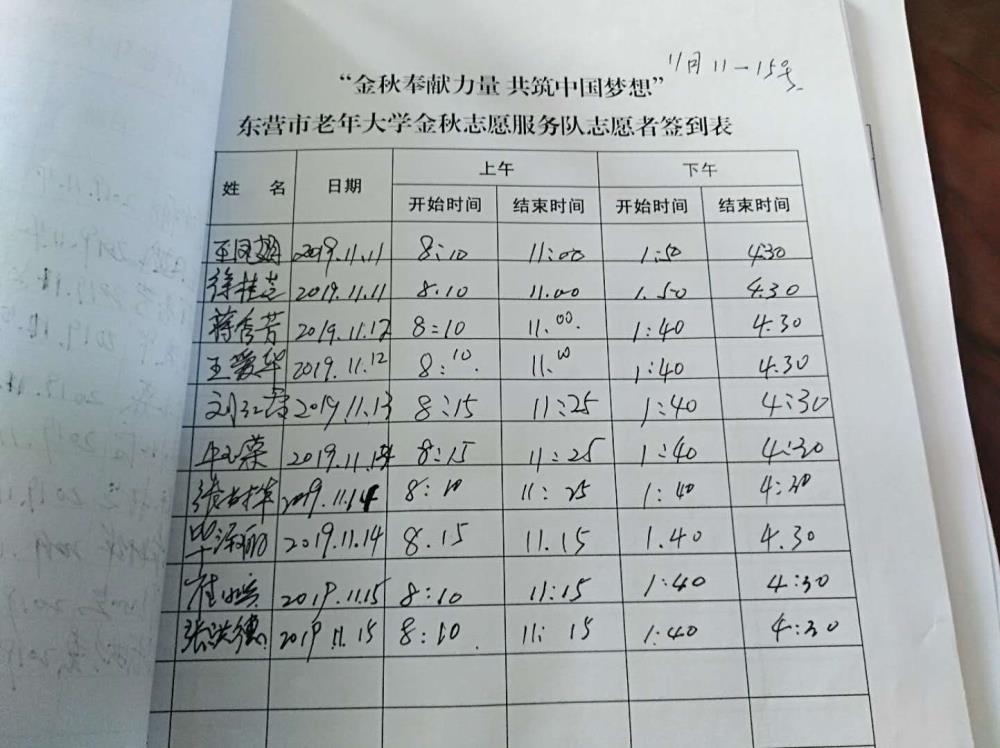 11月11—15号
“金秋奉献力量 共筑中国梦想”
东营市老年大学金秋志愿服务队志愿者签到表
姓 名 日期 上午 下午
开始时间 结束时间 开始时间 结束时间
2019.11.11 8:10 11:00 1:50 4:30
徐桂芝 2019.11.11 8.10 11.00 1.50 4.30
蒋秀芳 2019.11.12 8:10 11.00. 1:40 4.30
王爱华 2019.11.12 8:10. 11.00 1:40 4.30
2019.11.13 8:15 11:25 1:40 4:30
2019.11.13 8:15 11:25 1:40 4:30
2019.11.14 8:10 11:25 1:40 4:30
2019.11.14 8.15 11.15 1.40 4.30
2019.11.15 8:10 11:15 1:40 4:30
张洪德 2019.11.15 8:10 11:15 1:40 4:30